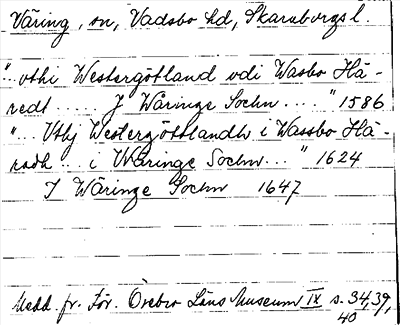 Väring, sn, Vadsbo hd, Skaraborgs l.
"... vthi Westergötland vdi Wasbo Hä-
redt ..... J Wåringe Sochn ...." 1586
"... Vthj Westergöttlandh i Wassbo Hä-
radh ... i Wäringe Sochn..." 1624
I Wäringe Sochn 1647
Medd. fr. För. Örebro Läns Museum IX s. 34, 39,
40